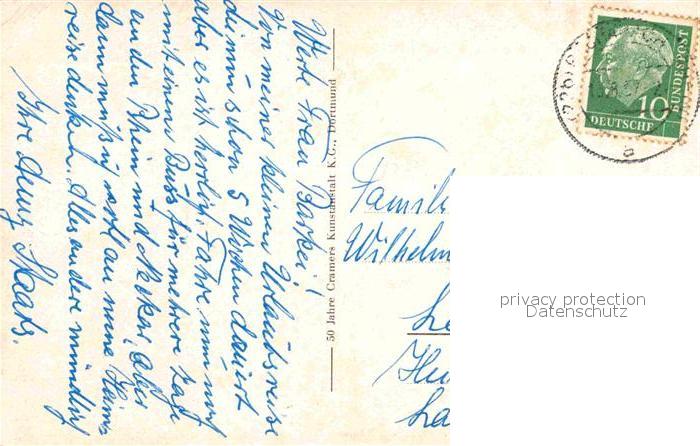 Werte Frau Barkei!
Von meiner kleinen Urlaubsreise
die nun schon 5 Wochen dauert
aber es ist herrlich. Fahre nun auf
mit einem Buss für mehrere Tage
an den Rhein und Neckar, aber
dann muß ich wohl an meine Heim-
reise denken. Alles andere mündlich
Ihre Anny Staats.
50 Jahre Cramers Kunstanstalt K.G., Dortmund
DEUTSCHE
BUNDESPOST
10
Famil
Wilhelm
privacy protection
Datenschutz